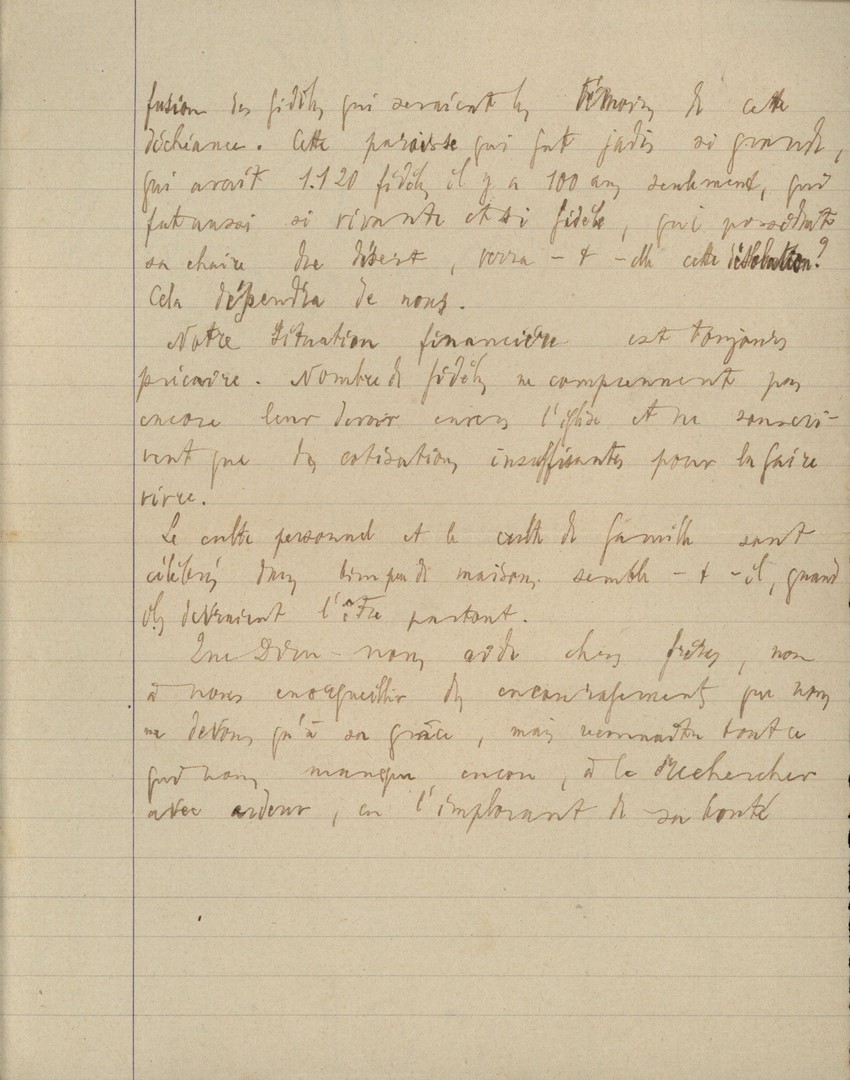 fusion des fidèles qui seraient les témoins de cette
déchéance. Cette paroisse qui fut jadis si grande,
qui avait 1.120 fidèles il y a 100 ans seulement, qui
fut aussi si vivante et si fidèle, qui possédait
sa chaire du désert, verra-t-elle cette désolation?
Cela dépendra de nous.
Notre situation financière est toujours
précaire. Nombre de fidèles ne comprennent pas
encore leur devoir envers l'église et ne souscri-
vent que des cotisations insuffisantes pour la faire
vivre.
Le culte personnel et le culte de famille sont
célébrés dans bien peu de maisons semble-t-il, quand
ils devraient l'être partout.
Que Dieu nous aide chers frères, non
à nous enorgueillir des encouragements que nous
ne devons qu'à sa grâce, mais reconnaître tout ce
qui nous manque encore, à le rechercher
avec ardeur, en l'implorant de sa bonté